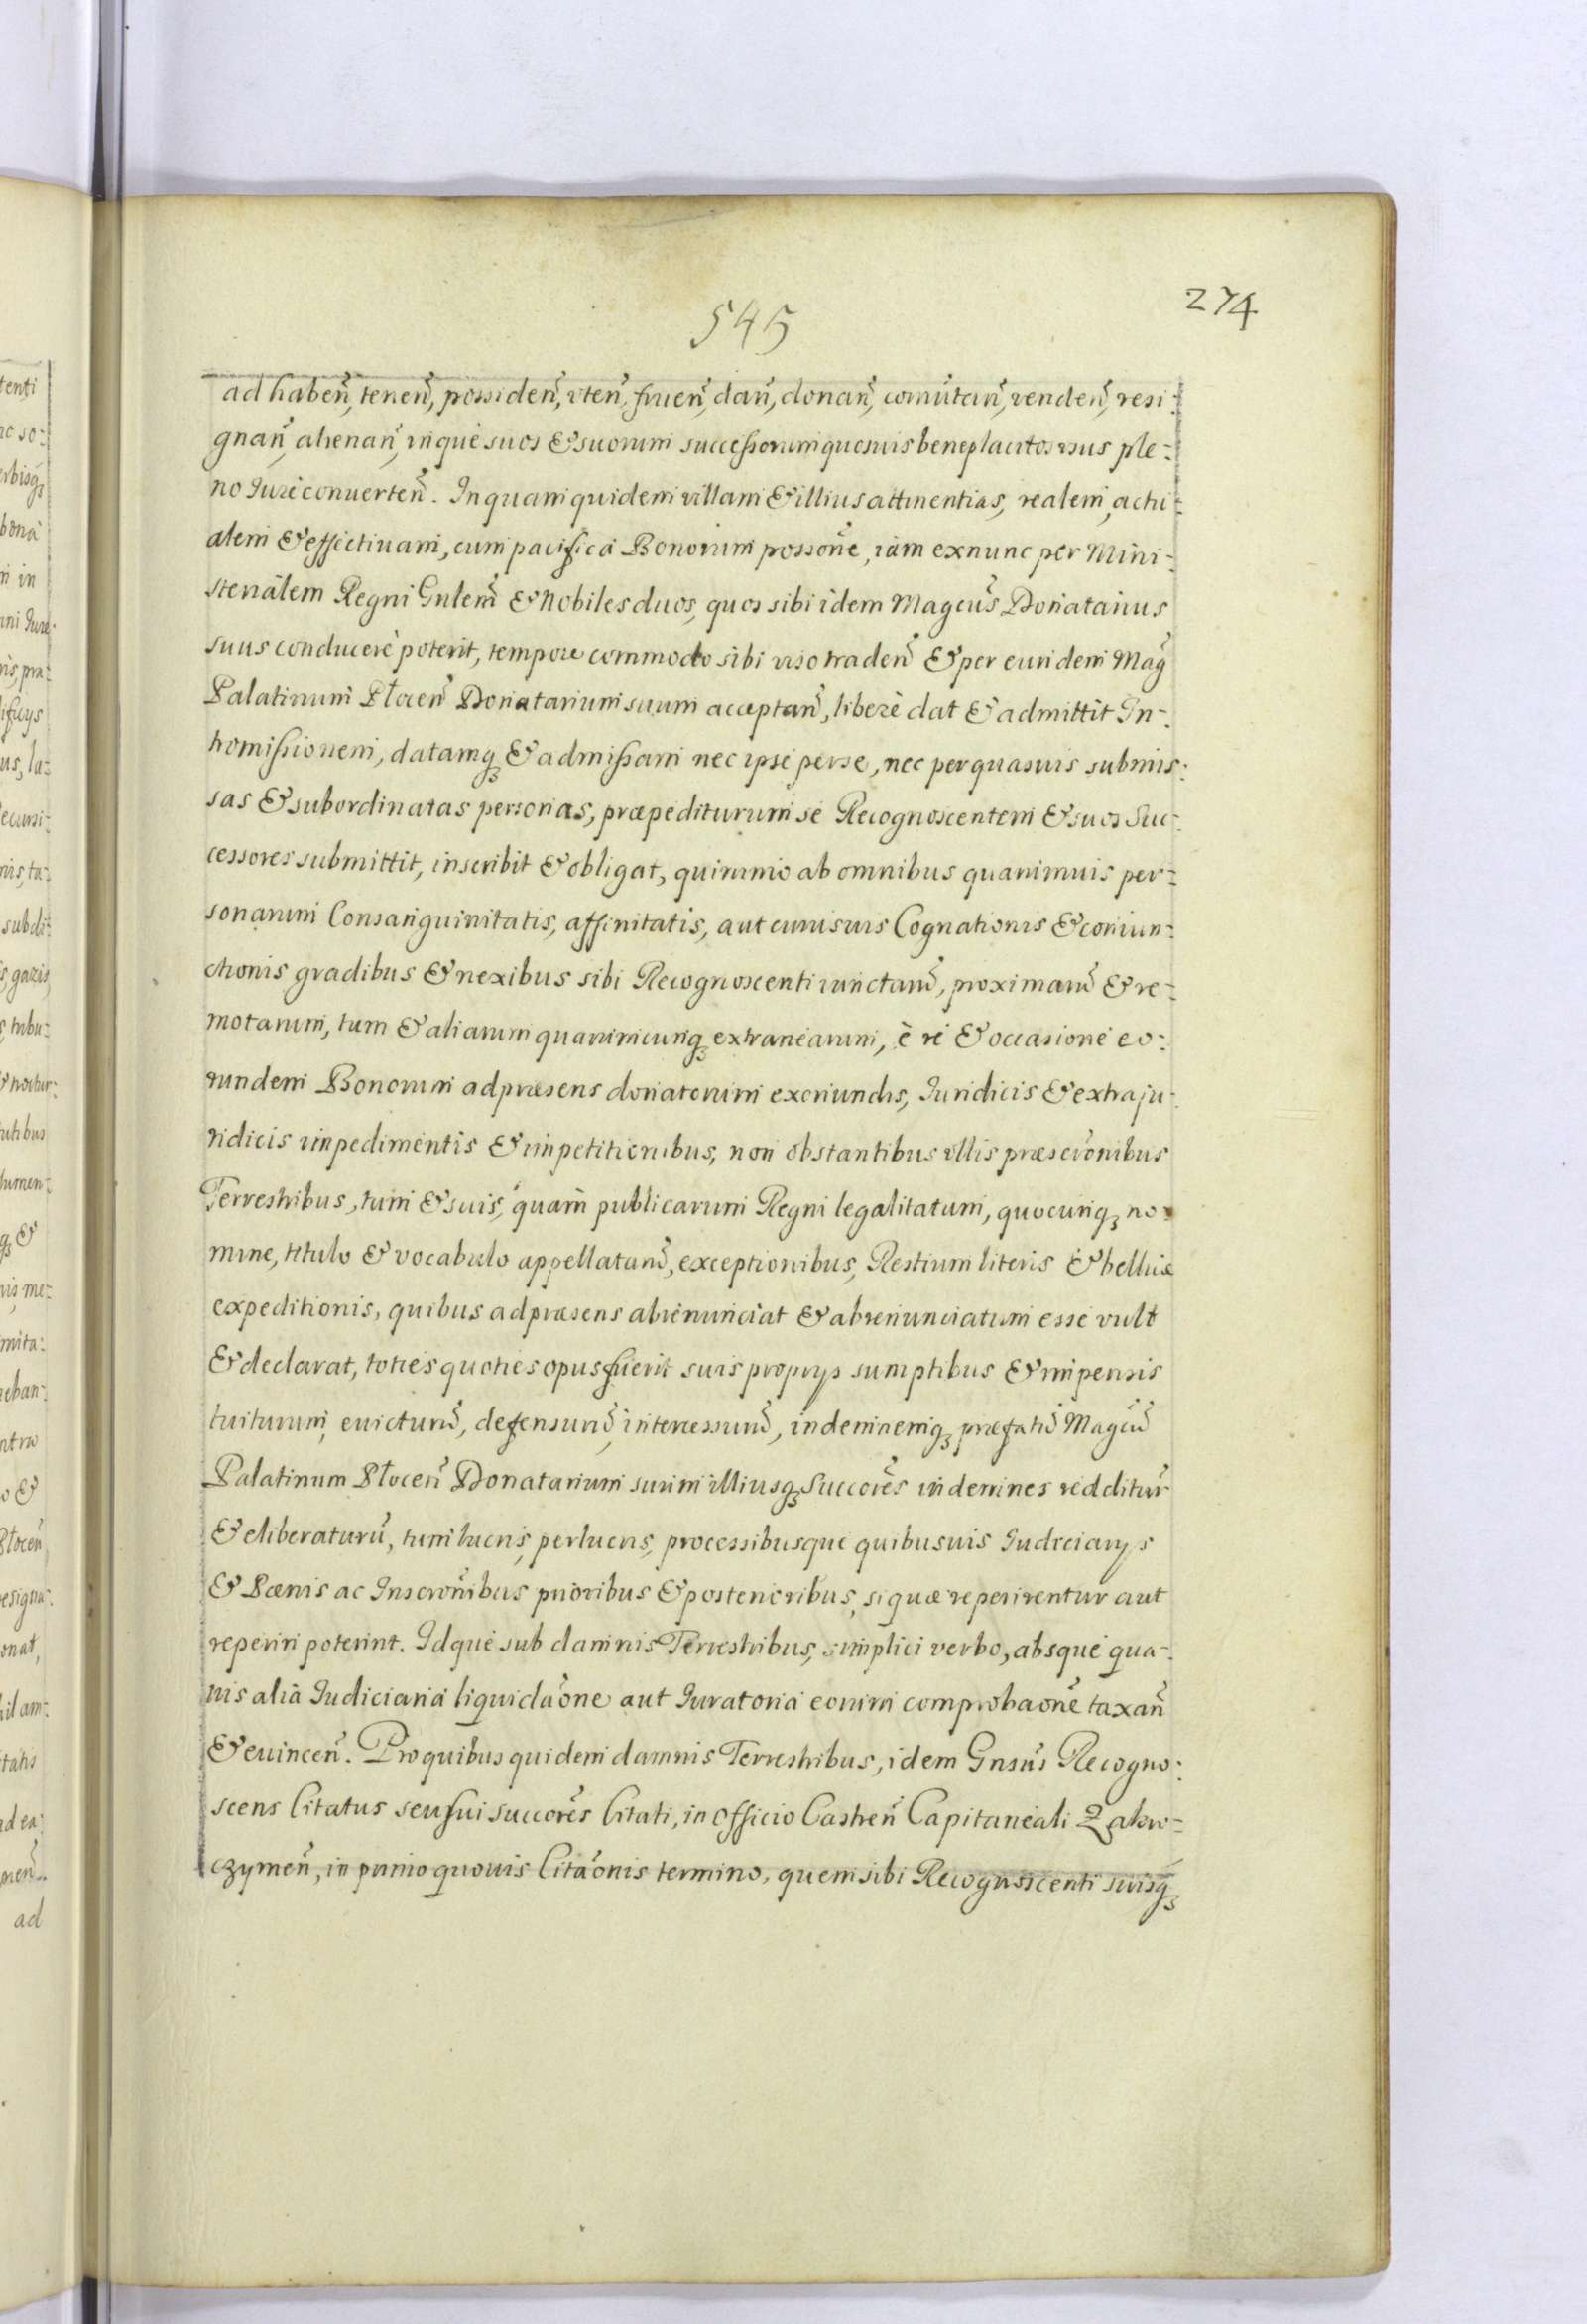 274
545
ad habeñ, teneñ, possideñ, vteñ, frueñ, dañ, donañ, com̃utañ, vendeñ, resi-
gnañ, alienañ, inque suos & suorum successorum quosuis beneplacitos vsus ple-
no Jure conuerteñ. In quam quidem villam & illius attinentias, realem, actu-
alem & effectiuam, cum pacifica Bonorum possoñe, iam exnunc per Mini-
sterialem Regni Gñlem & Nobiles duos, quos sibi idem Magcus Donatarius
suus conducere poterit, tempore commodo sibi viso tradeñ & per eundem Mag
Palatinum Płoceñ Donatarium suum acceptañ, libere dat & admittit In-
tromissionem, datamq & admissam nec ipse per se, nec per quasuis submis-
sas & subordinatas personas, præpediturum se Recognoscentem & suos Suc-
cessores submittit, inscribit & obligat, quinimo ab omnibus quarumuis per-
sonarum Consanguinitatis, affinitatis, aut cuiusuis Cognationis & coniun-
ctionis gradibus & nexibus sibi Recognoscenti iunctarũ, proximarũ & re-
motarum, tum & aliarum quarumcunq extranearum, è re & occasione eo-
rundem Bonorum ad præsens donatorum exoriundis, Juridicis & extraju-
ridicis impedimentis & impetitionibus, non obstantibus vllis præscr̃onibus
Terrestribus, tum & suis, quam publicarum Regni legalitatum, quocunq no-
mine, titulo & vocabulo appellatarũ, exceptionibus, Restium literis & bellicæ
expeditionis, quibus ad præsens abrenunciat & abrenunciatum esse vult
& declarat, toties quoties opus fuerit suis proprys sumptibus & impensis
tuiturum, euicturũ, defensurũ, intercessurũ, indemnemq præfatũ Magcũ
Palatinum Płoceñ Donatarium suum illiusq Succores indemnes redditur
& eliberaturũ, tum lucris, perlucris, processibusque quibusuis Judiciarys
& Pœnis ac Inscronibus prioribus & posterioribus, si quæ reperirentur aut
reperiri poterint. Idque sub damnis Terrestribus, simplici verbo, absque qua-
uis alia Judiciaria liquidaone aut Juratoria eorum comprobaone taxañ
& euinceñ. Pro quibus quidem damnis Terrestribus, idem Gnsus Recogno-
scens Citatus seu sui succores Citati, in Officio Castreñ Capitaneali Zakro-
czymeñ, in primo quouis Citaonis termino, quem sibi Recognoscenti suisq